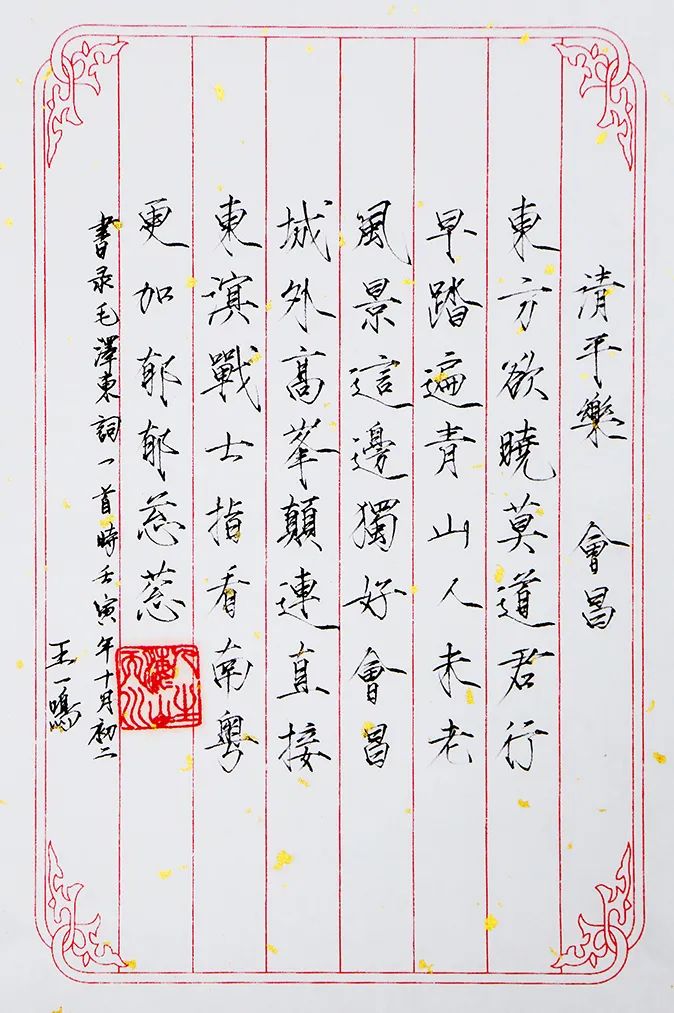 清平樂 會昌
東方欲曉莫道君行
早踏遍青山人未老
風景這邊獨好會昌
城外高峯顛連直接
東溟戰士指看南粵
更加郁郁蔥蔥
書录毛澤東詞一首時壬寅年十月初二
王一鳴